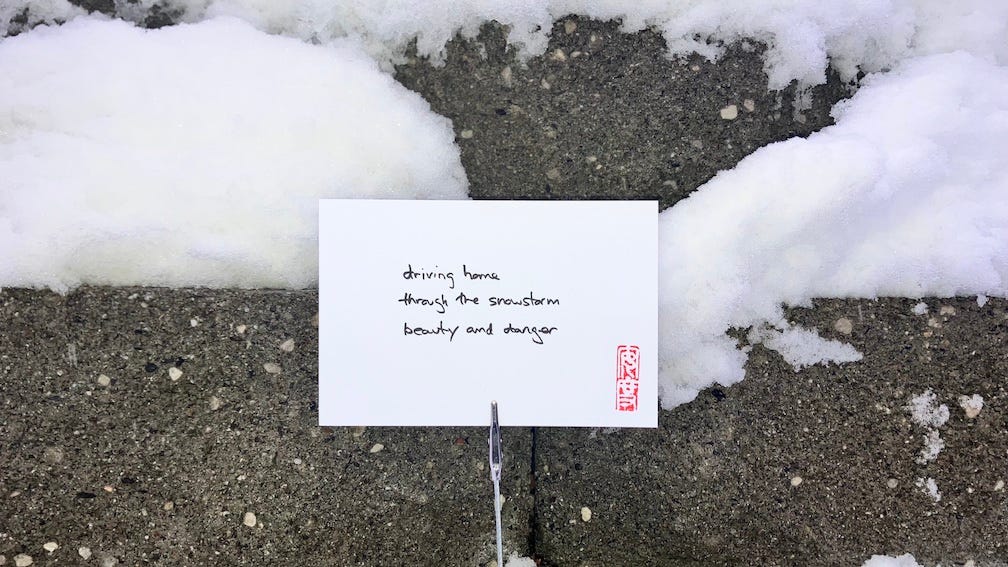 driving home
through the snowstorm
beauty and danger